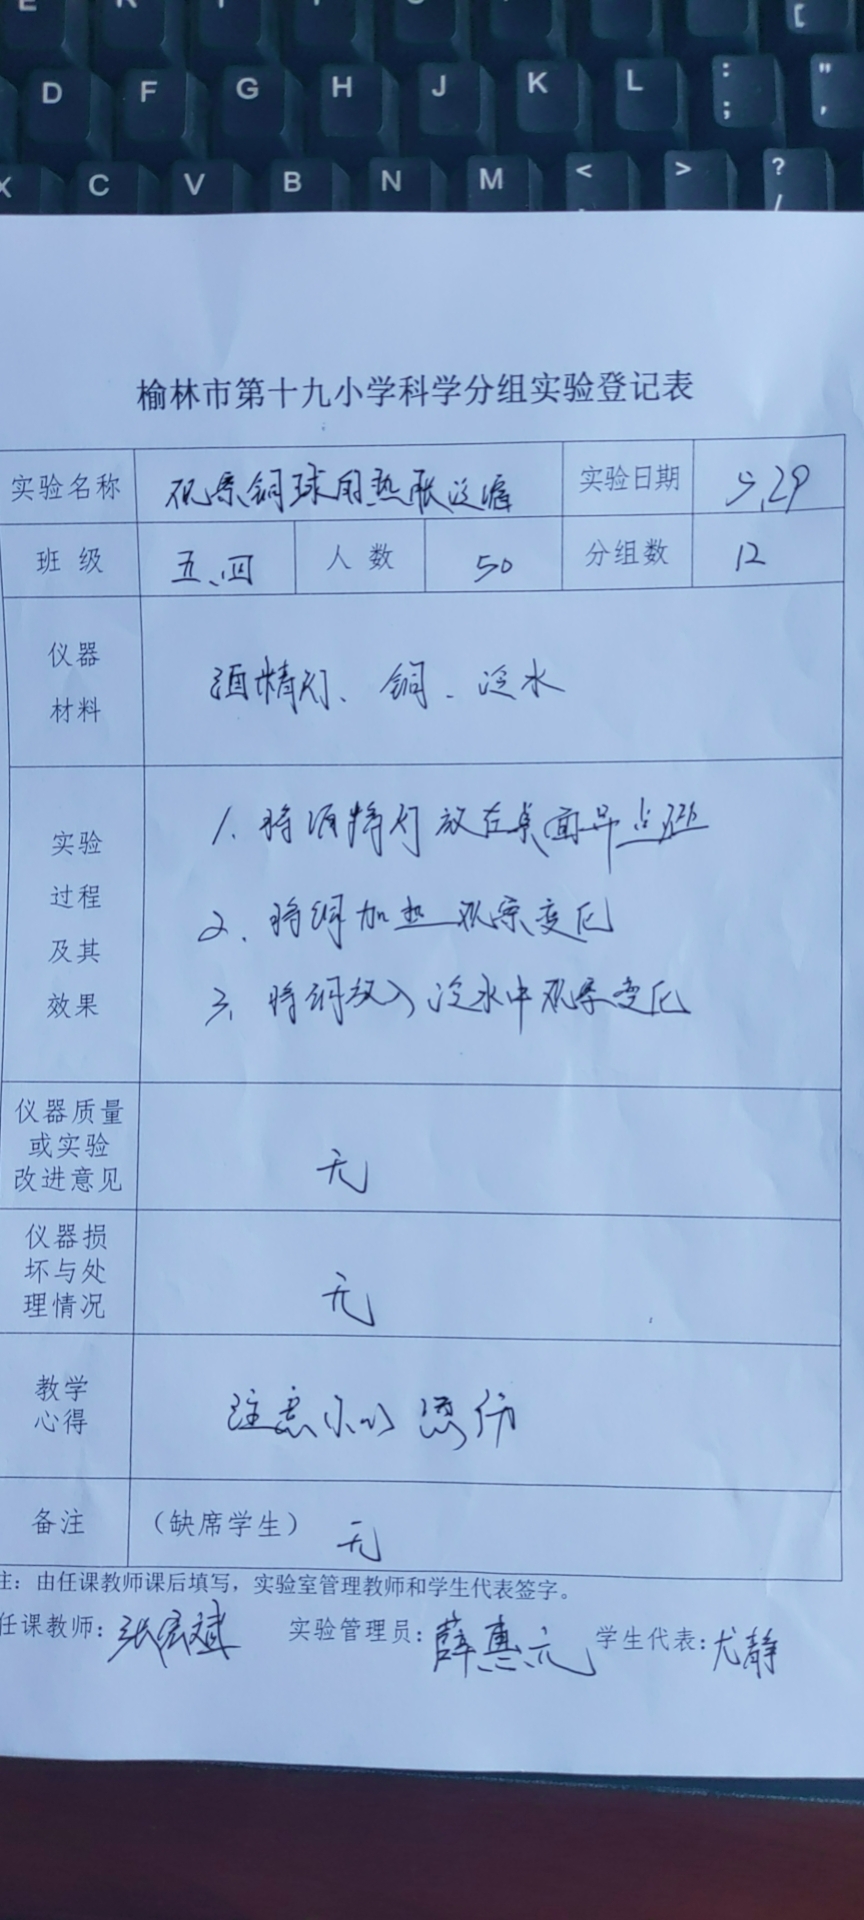 D F G H J K L : ; " '
X C V B N M < > ? /
榆林市第十九小学科学分组实验登记表
实验名称 观察铜球的热胀冷缩 实验日期 5.29
班 级 五、四 人 数 50 分组数 12
仪器
材料
酒精灯、铜、冷水
实验
过程
及其
效果
1. 将酒精灯放在桌面并点燃
2. 将铜加热观察变化
3. 将铜放入冷水中观察变化
仪器质量
或实验
改进意见
无
仪器损
坏与处
理情况
无
教学
心得
注意小心烫伤
备注 （缺席学生） 无
注：由任课教师课后填写，实验室管理教师和学生代表签字。
任课教师：张宏斌 实验管理员：薛惠元 学生代表：尤静